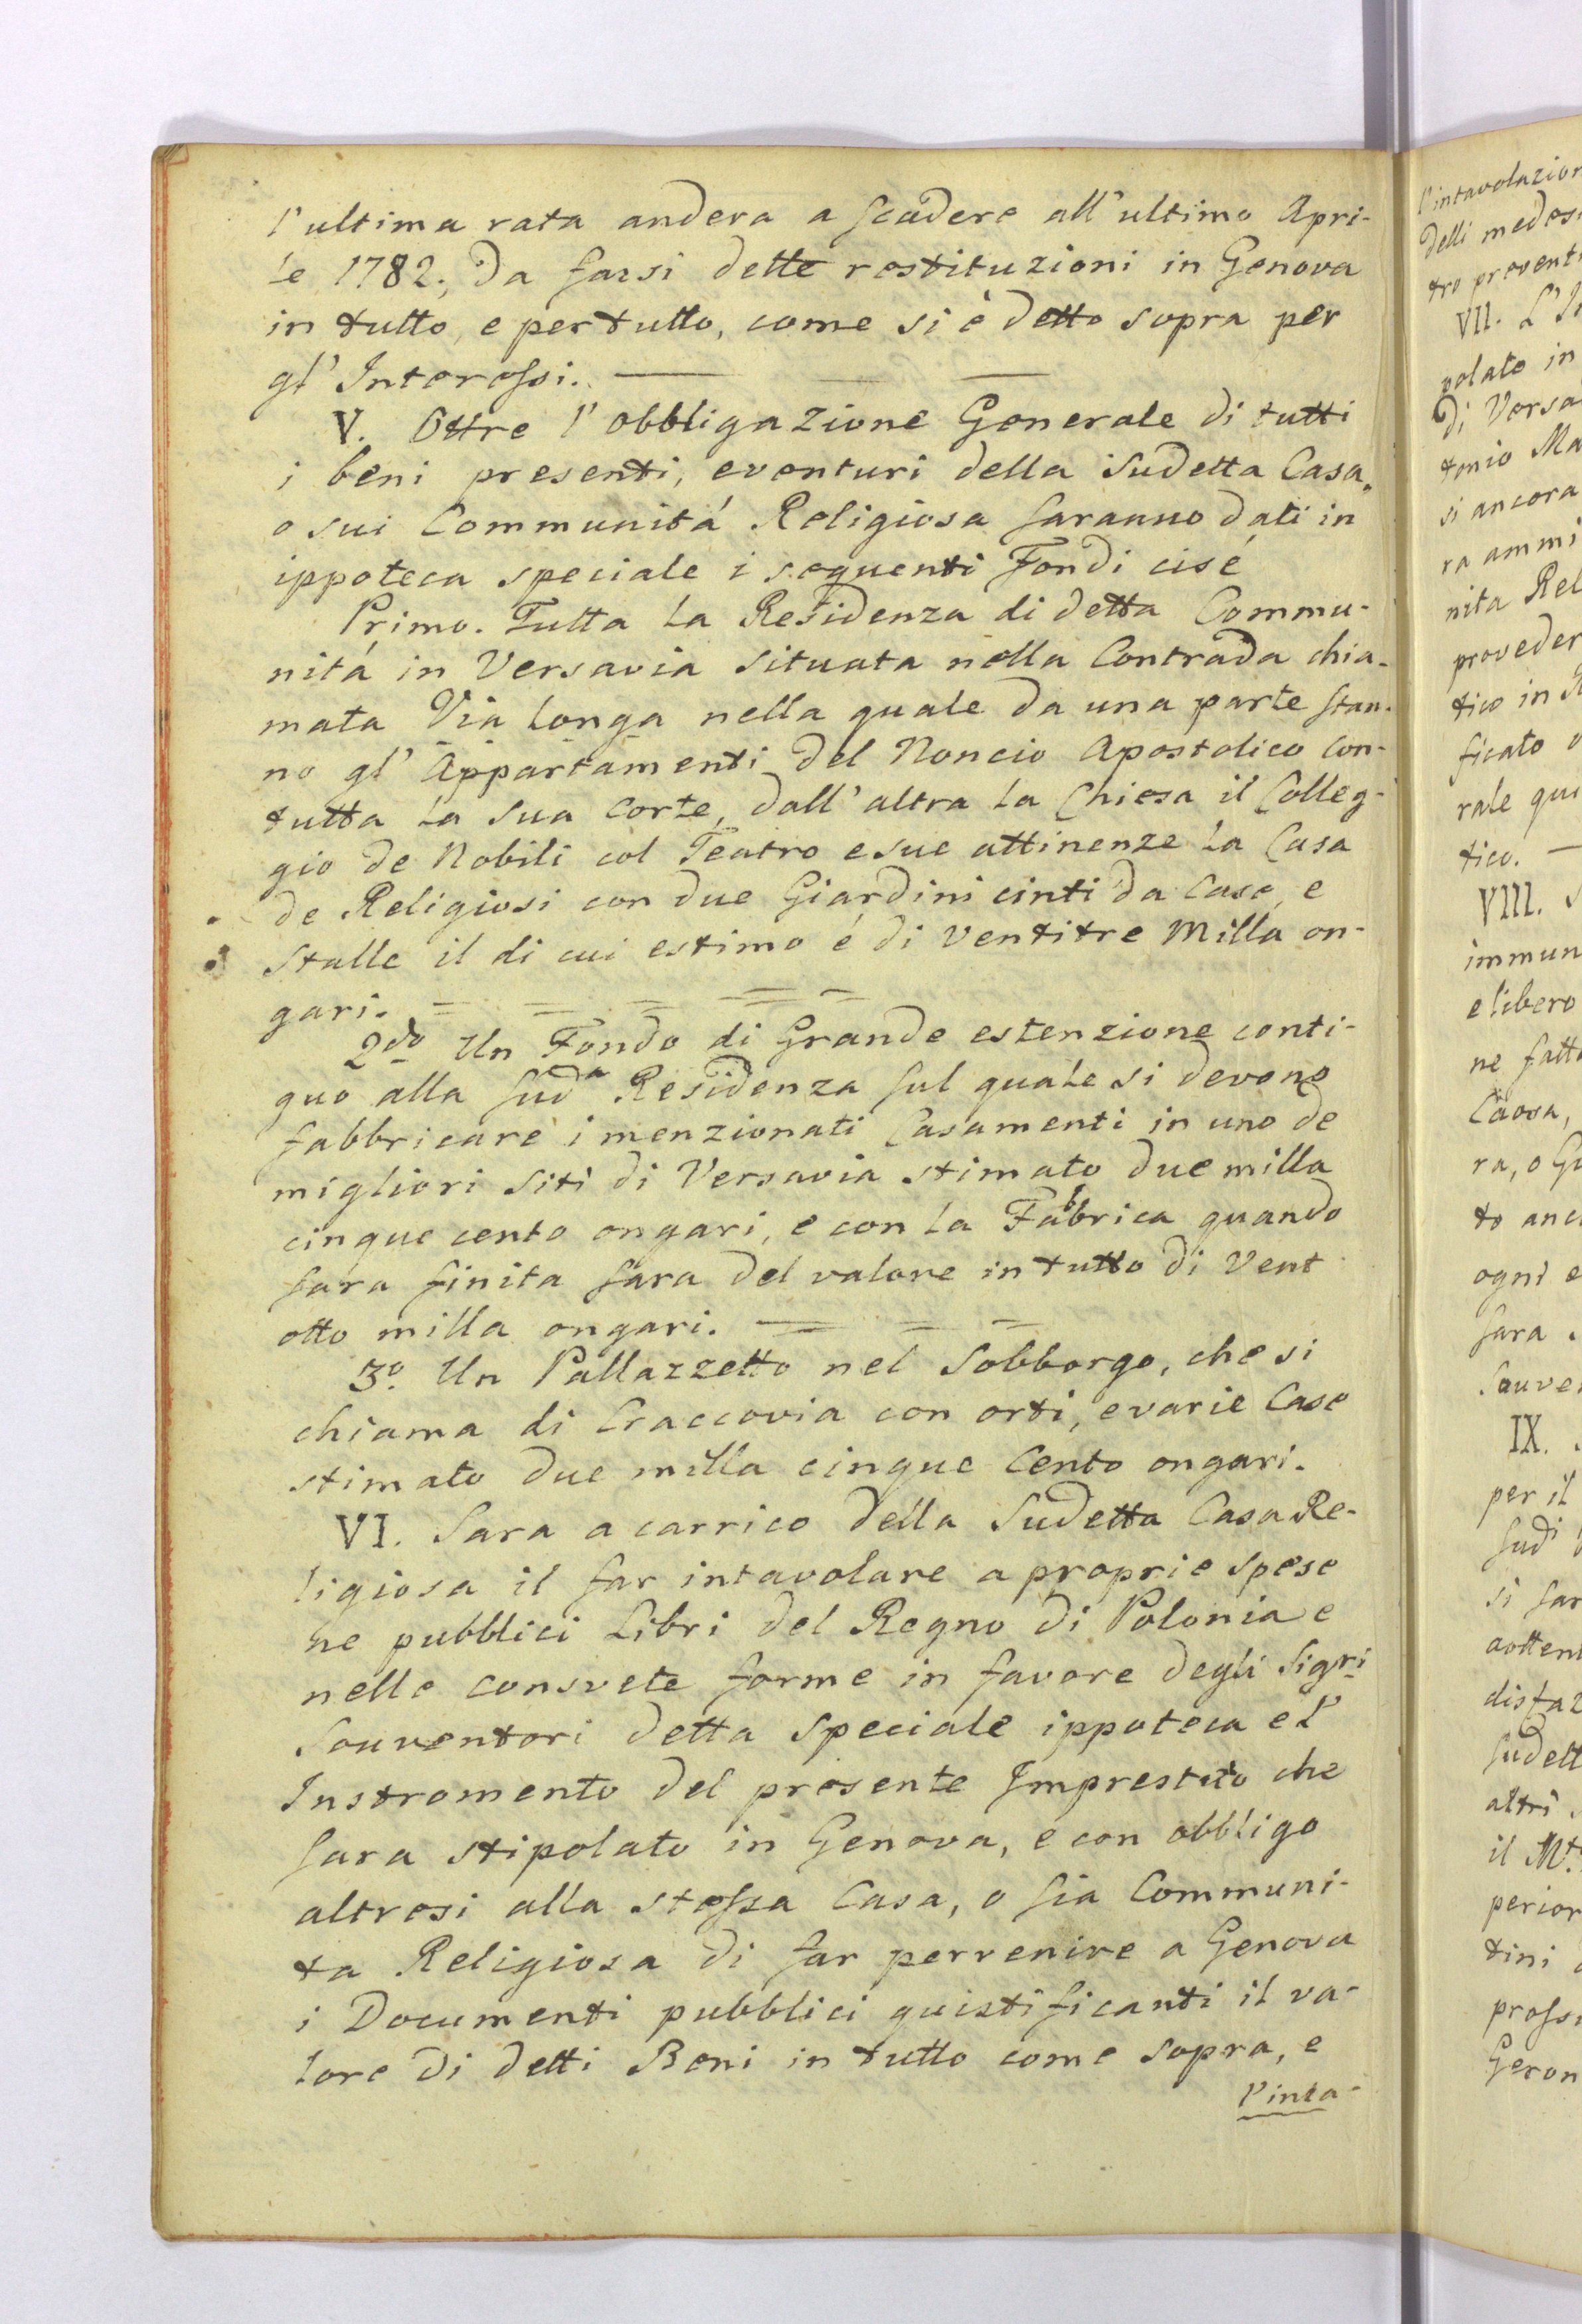 l'ultima rata andera a scadere all'ultimo Apri-
le 1782., da farsi dette restituzioni in Genova
in tutto, e per tutto, come si è detto sopra per
gl' Interessi.
V. Oltre l'obbligazione Generale di tutti
i beni presenti, e venturi della Sudetta Casa,
o sui Communitá Religiosa saranno dati in
ippoteca speciale i sequenti Fondi cisé
Primo. Tutta la Residenza di detta Commu-
nitá in Versavia situata nella Contrada chia-
mata Via longa nella quale da una parte stan-
no gl' Appartamenti del Noncio Apostolico con-
tutta la sua Corte, dall'altra la Chiesa il Colleg-
gio de Nobili col Teatro e sue attinenze la Casa
de Religiosi con due Giardini cinti da Case, e
stalle il di cui estimo é di ventitre Milla on-
gari.
2do Un Fondo di Grande estenzione conti-
guo alla sudª Residenza sul quale si devono
fabbricare i menzionati Casamenti in uno de
migliori siti di Versavia stimato due milla
cinque cento ongari, e con la Fabbrica quando
sará finita sara del valore in tutto di Vent
otto milla ongari.
3º Un Pallazzetto nel Sobborgo, che si
chiama di Craccovia con orti, e varie Case
stimato due milla cinque Cento ongari.
VI. Sara a carrico della Sudetta Casa Re-
ligiosa il far intavolare a proprie spese
ne pubblici Libri del Regno di Polonia e
nelle consvete forme in favore degli Sigri
Souventori detta speciale ippoteca e l'
Instromento del presente Imprestito che
sara stipolato in Genova, e con obbligo
altresi alla stessa Casa, o sia Communi-
ta Religiosa di far pervenire a Genova
i Documenti pubblici guistificanti il va-
lore di detti Beni in tutto come sopra, e
l'inta-
l'intavolazion
delli medesi
tro provent
VII. L'I
volato in
di Versa
tonio Ma
si ancora
ra ammi
nita Rel
proveder
tico in
ficato
rale qui
tico.
VIII.
immun
e libero
ne fatto
Caosa,
ra, o Gu
to anc
ogni e
sara
Souve
IX.
per il
sudi
si far
aotten
disfaz
sudett
altri
il Mto
perior
tini
prossi
Geron